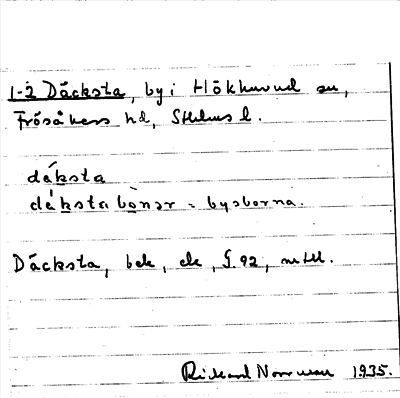 1-2 Däcksta, by i Hökhuvud sn,
Frösåkers hd, Sthlms l.
dáksta
dáksta bònər = bysborna.
Däcksta, bok, ek, f. 92, mtl.
Rickard Norrman 1935.